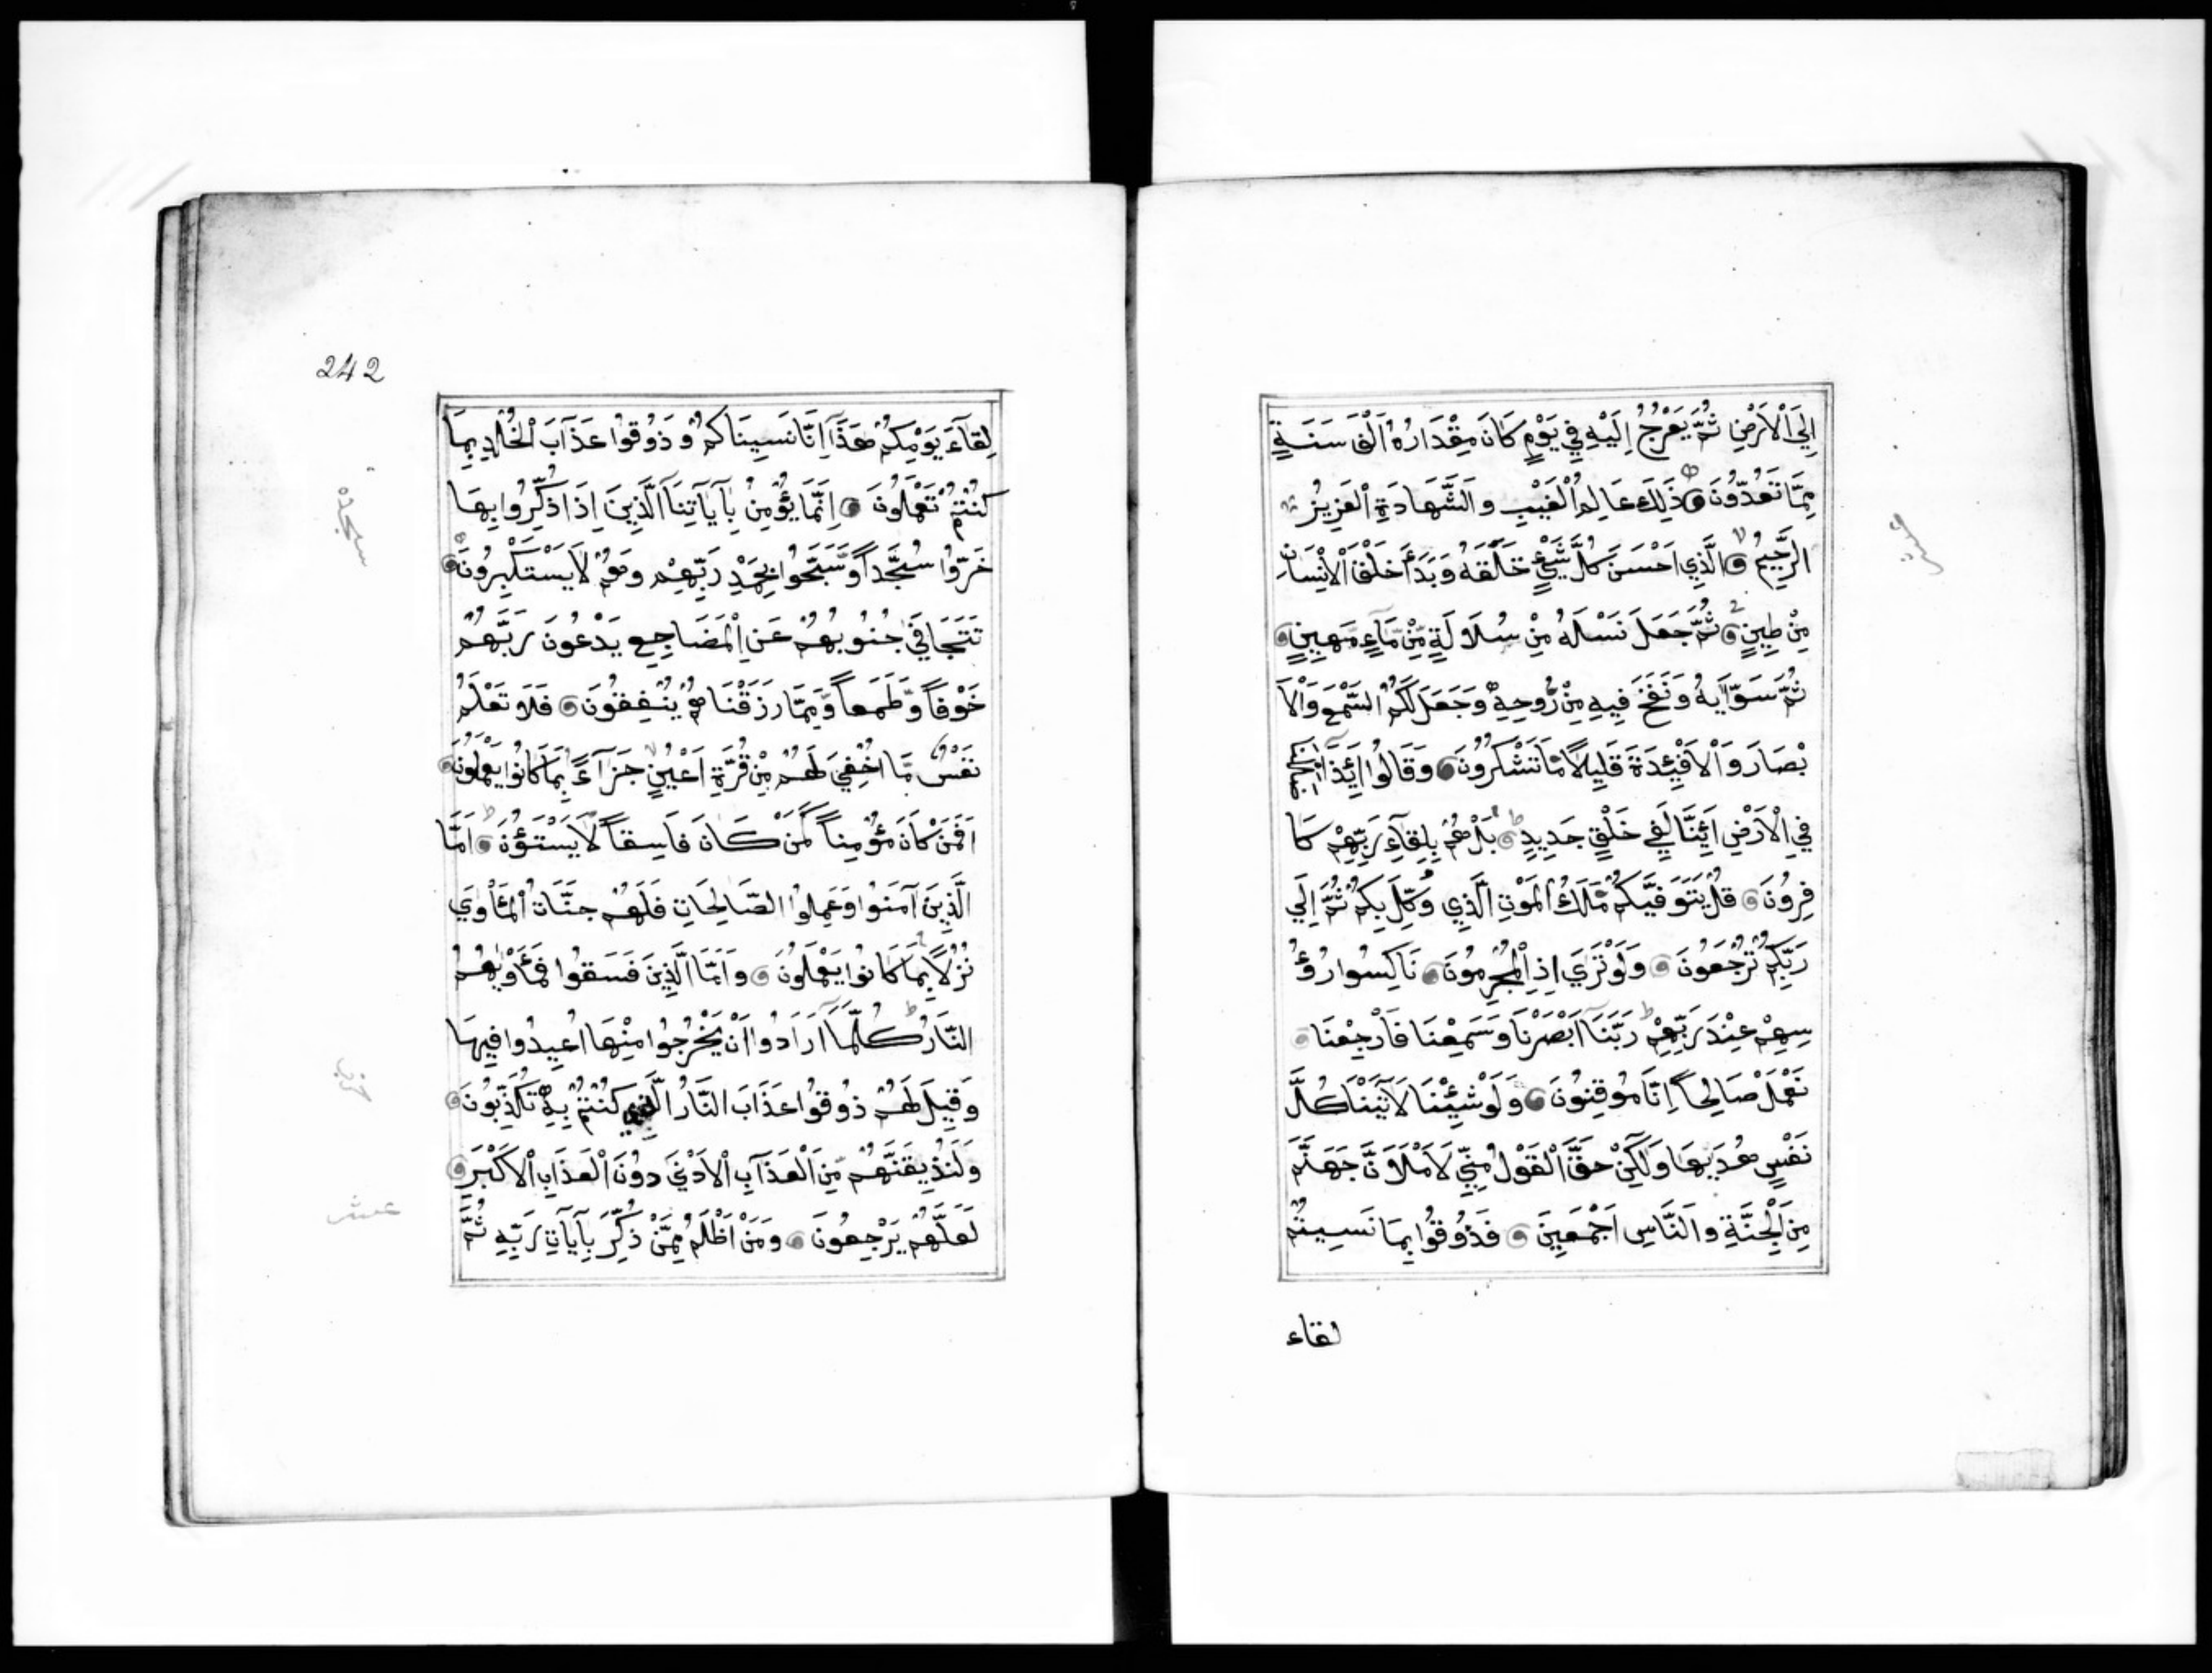 اِلَي اْلاَرْضِ ثُمَّ يَعْرُجُ اِلَيْهِ فِي يَوْمٍ كَانَ مِقْدَارُهُ اَلْفَ سَنَةٍ
مِمَّا تَعُدُّونَ ذَلِكَ عَالِمُ الْغَيْبِ وَالشَّهَادَةِ الْعَزِيزُ
الرَّحِيمُ الَّذِي اَحْسَنَ كُلَّ شَيْءٍ خَلَقَهُ وَبَدَأَ خَلْقَ الْاِنْسَانِ
مِنْ طِينٍ ثُمَّ جَعَلَ نَسْلَهُ مِنْ سُلَالَةٍ مِّنْ مَّاءٍ مَهِينٍ
ثُمَّ سَوَّايهُ وَنَفَخَ فِيهِ مِنْ رُّوحِهِ وَجَعَلَ لَكُمُ السَّمْعَ وَالْاَ
بْصَارَ وَالْاَفْئِدَةَ قَلِيلًا مَّا تَشْكُرُونَ وَقَالُوا ائِذَا
فِي الْاَرْضِ اَئِنَّا لَفِي خَلْقٍ جَدِيدٍ بَلْ هُمْ بِلِقَآءِ رَبِّهِمْ كَا
فِرُونَ قُلْ يَتَوَفَّيكُمْ مَّلَكُ الْمَوْتِ الَّذِي وُكِّلَ بِكُمْ ثُمَّ اِلَي
رَبِّكُمْ تُرْجَعُونَ وَلَوْ تَرَي اِذِ الْمُجْرِمُونَ نَاكِسُوا رُؤُ
سِهِمْ عِنْدَ رَبِّهِمْ رَبَّنَا اَبْصَرْنَا وَسَمِعْنَا فَارْجِعْنَا
نَعْمَلْ صَالِحاً اِنَّا مُوقِنُونَ وَلَوْ شِئْنَا لَآتَيْنَا كُلَّ
نَفْسٍ هُدَيهَا وَلَكِنْ حَقَّ الْقَوْلُ مِنِّي لَاَمْلَاَنَّ جَهَنَّمَ
مِنَ الْجِنَّةِ وَالنَّاسِ اَجْمَعِينَ فَذُوقُوا بِمَا نَسِيتُمْ
لقاء
242
لِقَآءَ يَوْمِكُمْ هَذَا اِنَّا نَسِينَاكُمْ وَذُوقُوا عَذَابَ الْخُلْدِ بِمَا
كُنْتُمْ تَعْمَلُونَ اِنَّمَا يُؤْمِنُ بِآيَاتِنَا الَّذِينَ اِذَا ذُكِّرُوا بِهَا
خَرُّوا سُجَّداً وَّسَبَّحُوا بِحَمْدِ رَبِّهِمْ وَهُمْ لَا يَسْتَكْبِرُونَ
تَتَجَافَي جُنُوبُهُمْ عَنِ الْمَضَاجِعِ يَدْعُونَ رَبَّهُمْ
خَوْفاً وَّطَمَعاً وَّمِمَّا رَزَقْنَاهُمْ يُنْفِقُونَ فَلَا تَعْلَمُ
نَفْسٌ مَّا اُخْفِيَ لَهُمْ مِّنْ قُرَّةِ اَعْيُنٍ جَزَآءً بِمَا كَانُوا يَعْمَلُونَ
اَفَمَنْ كَانَ مُؤْمِناً كَمَنْ كَانَ فَاسِقاً لَّا يَسْتَوُنَ اَمَّا
الَّذِينَ آمَنُوا وَعَمِلُوا الصَّالِحَاتِ فَلَهُمْ جَنَّاتُ الْمَأْوَي
نُزُلًا بِمَا كَانُوا يَعْمَلُونَ وَاَمَّا الَّذِينَ فَسَقُوا فَمَأْوَيهُمُ
النَّارُ كُلَّمَا اَرَادُوا اَنْ يَّخْرُجُوا مِنْهَا اُعِيدُوا فِيهَا
وَقِيلَ لَهُمْ ذُوقُوا عَذَابَ النَّارِ الَّذِي كُنْتُمْ بِهِ تُكَذِّبُونَ
وَلَنُذِيقَنَّهُمْ مِّنَ الْعَذَابِ الْاَدْنَي دُونَ الْعَذَابِ الْاَكْبَرِ
لَعَلَّهُمْ يَرْجِعُونَ وَمَنْ اَظْلَمُ مِمَّنْ ذُكِّرَ بِآيَاتِ رَبِّهِ ثُمَّ
سجده
حزب
عشر